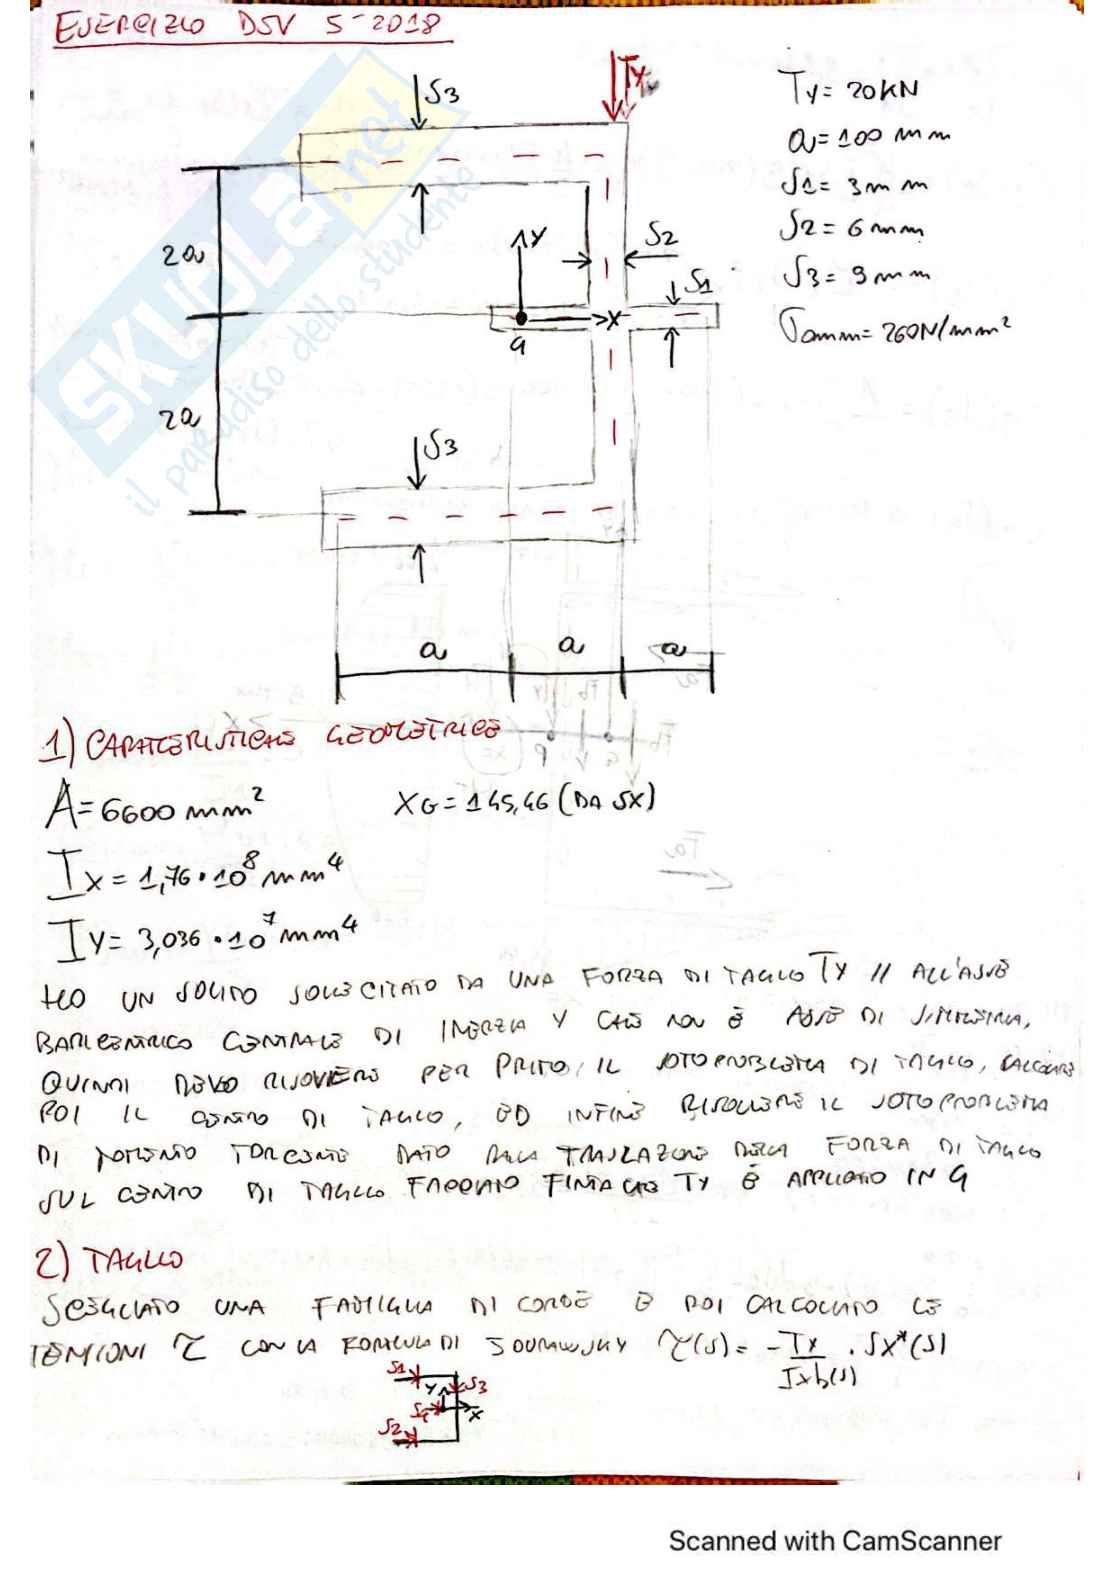 ESERCIZIO DSV 5-2018
Ty
S3
Ty = 20KN
a = 100 mm
S1 = 3mm
S2 = 6mm
S3 = 9mm
σamm = 260N/mm²
2a
y
S2
S1
x
G
2a
S3
a
a
a
SKUOLA.net
il paradiso dello studente
1) CARATTERISTICHE GEOMETRICHE
A = 6600 mm²
XG = 145,46 (DA SX)
Ix = 1,76 · 10⁸ mm⁴
Iy = 3,036 · 10⁷ mm⁴
HO UN SOLIDO SOLLECITATO DA UNA FORZA DI TAGLIO Ty // ALL'ASSE
BARICENTRICO CENTRALE DI INERZIA Y CHE NON È ASSE DI SIMMETRIA,
QUINDI DEVO RISOLVERE PER PRIMO, IL SOTTOPROBLEMA DI TAGLIO, CALCOLARE
POI IL CENTRO DI TAGLIO, ED INFINE RISOLVERE IL SOTTOPROBLEMA
DI MOMENTO TORCENTE DATO DALLA TRASLAZIONE DELLA FORZA DI TAGLIO
SUL CENTRO DI TAGLIO FACCIAMO FINTA CHE Ty È APPLICATO IN G
2) TAGLIO
SCEGLIAMO UNA FAMIGLIA DI CORDE E POI CALCOLIAMO LE
TENSIONI τ CON LA FORMULA DI JOURAWSKY τ(s) = -Ty/Ixb(s) · Sx*(s)
S1
y
S3
S4
x
S2
Scanned with CamScanner